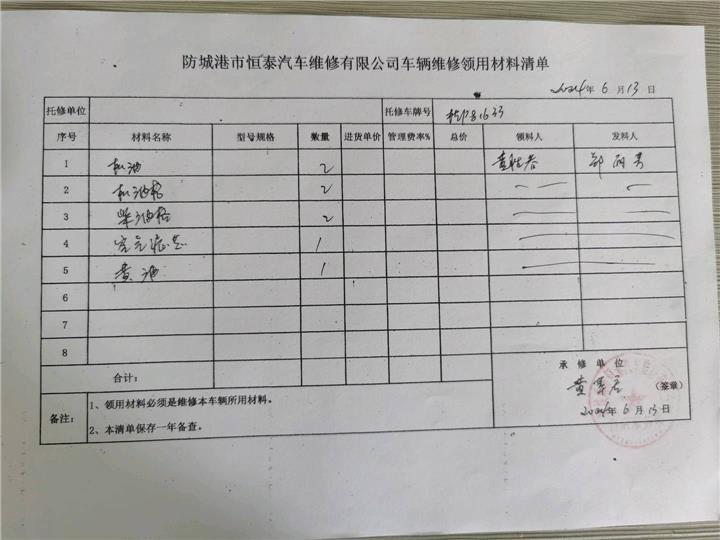 防城港市恒泰汽车维修有限公司车辆维修领用材料清单
2024年 6 月 13 日
托修单位 托修车牌号
序号 材料名称 型号规格 数量 进货单价 管理费率% 总价 领料人 发料人
1 机油 2
2 机油格 2
3 柴油格 2
4 1
5 黄油 1
6
7
8
合计:
承 修 单 位
黄 (签章)
2024年 6 月 13 日
备注:
1、领用材料必须是维修本车辆所用材料。
2、本清单保存一年备查。